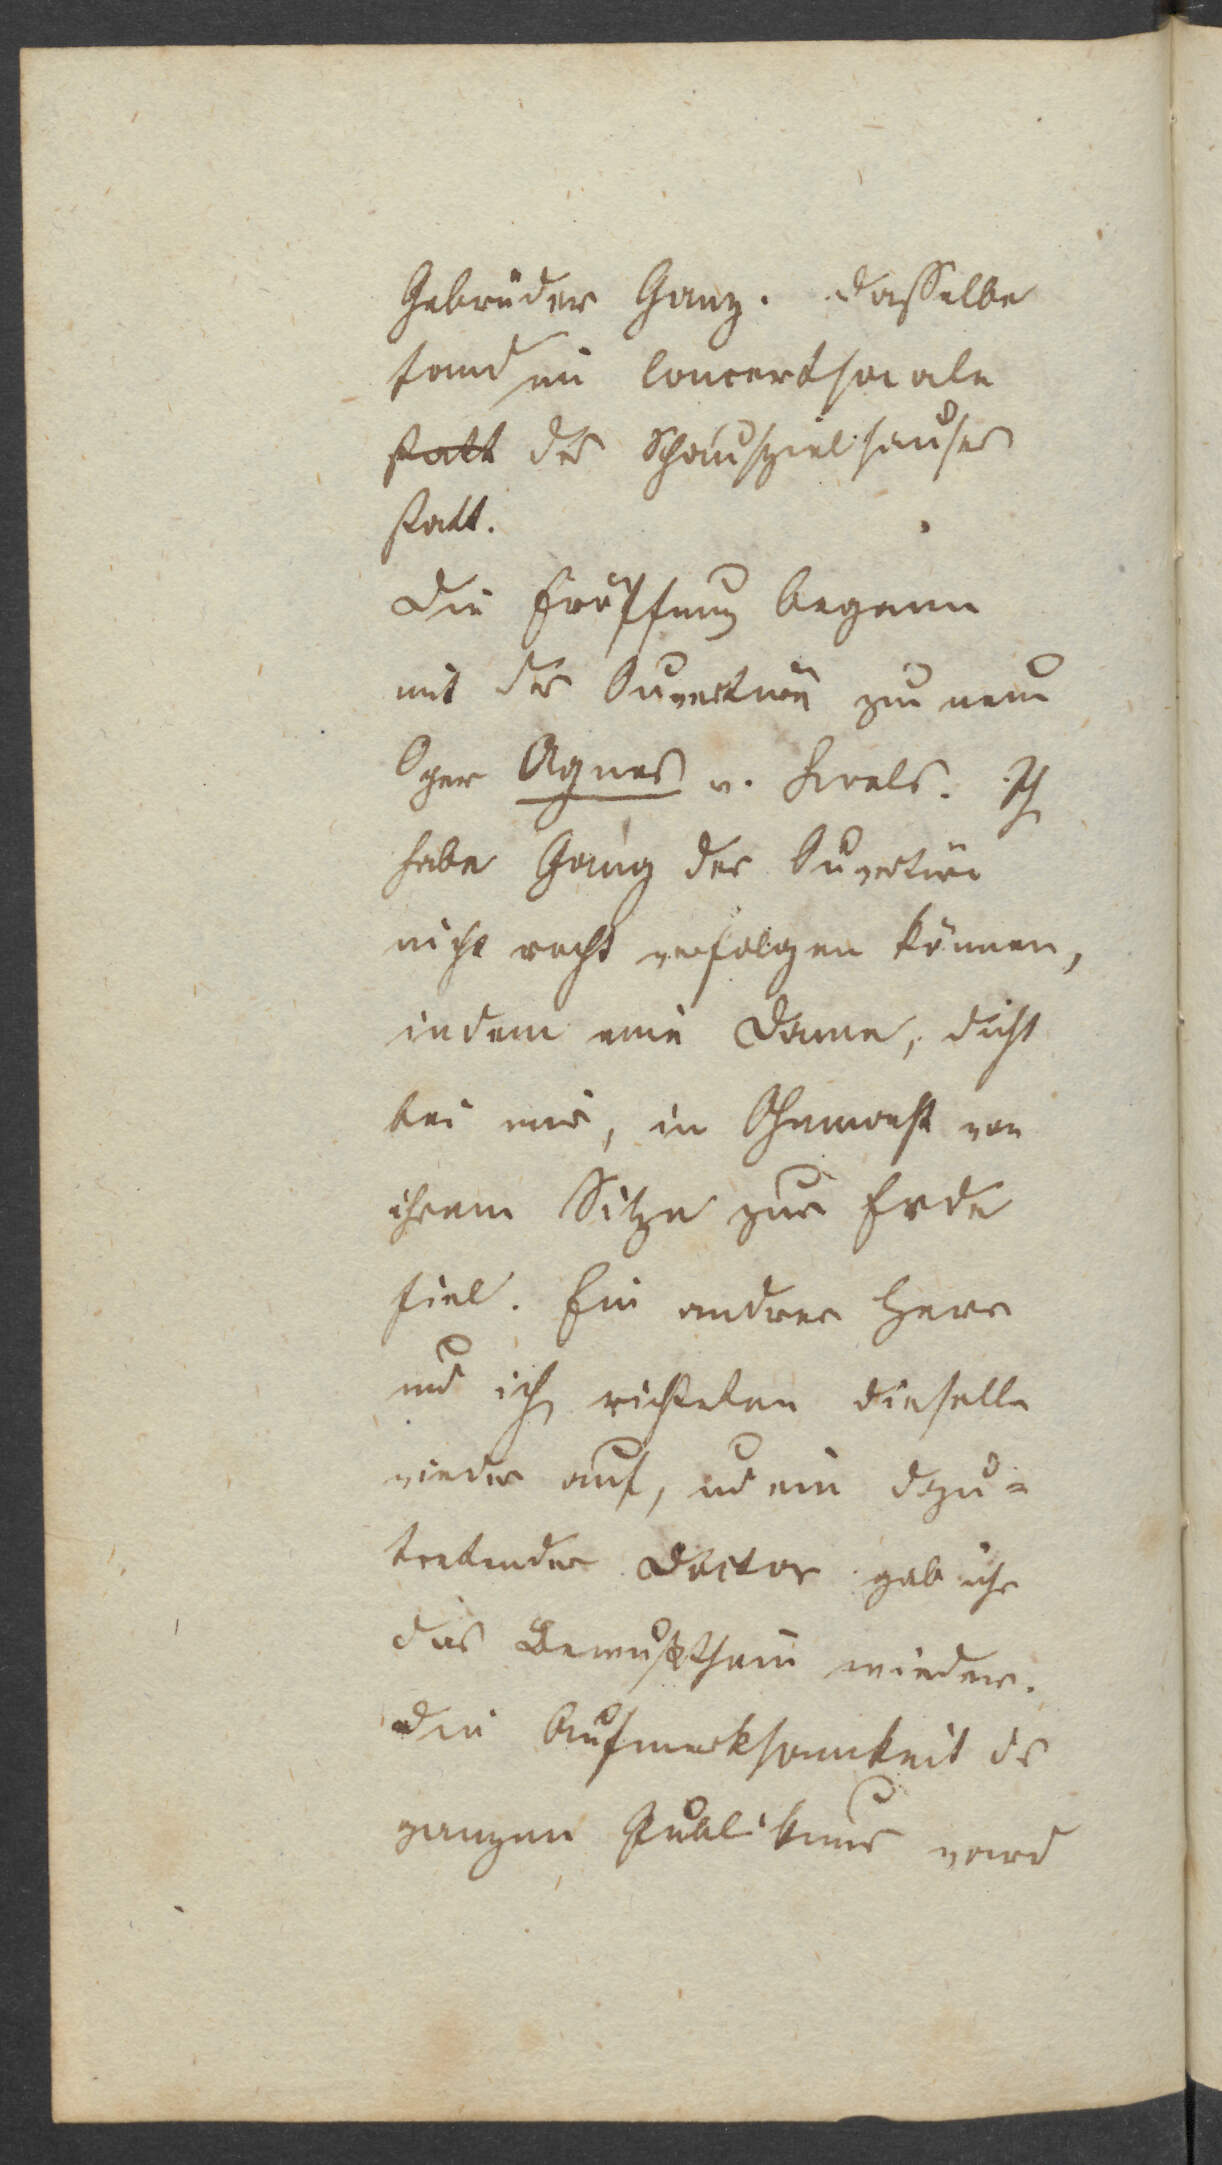 Gebrüder Ganz. Dasselbe
fand im Concertsaale
statt des Schauspielhauses
statt.
Die Eröffnung begann
mit der Ouvertüre zur neuen
Oper Agnes v. Krebs. Ich
habe Gang der Ouvertüre
nicht recht verfolgen können,
indem eine Dame, dicht
bei mir, in Ohnmacht von
ihrem Sitze zur Erde
fiel. Ein andrer Herr
und ich richteten dieselbe
wieder auf, und ein dazu-
tretender Doctor gab ihr
das Bewußtsein wieder.
Die Aufmerksamkeit des
ganzen Publikums ward